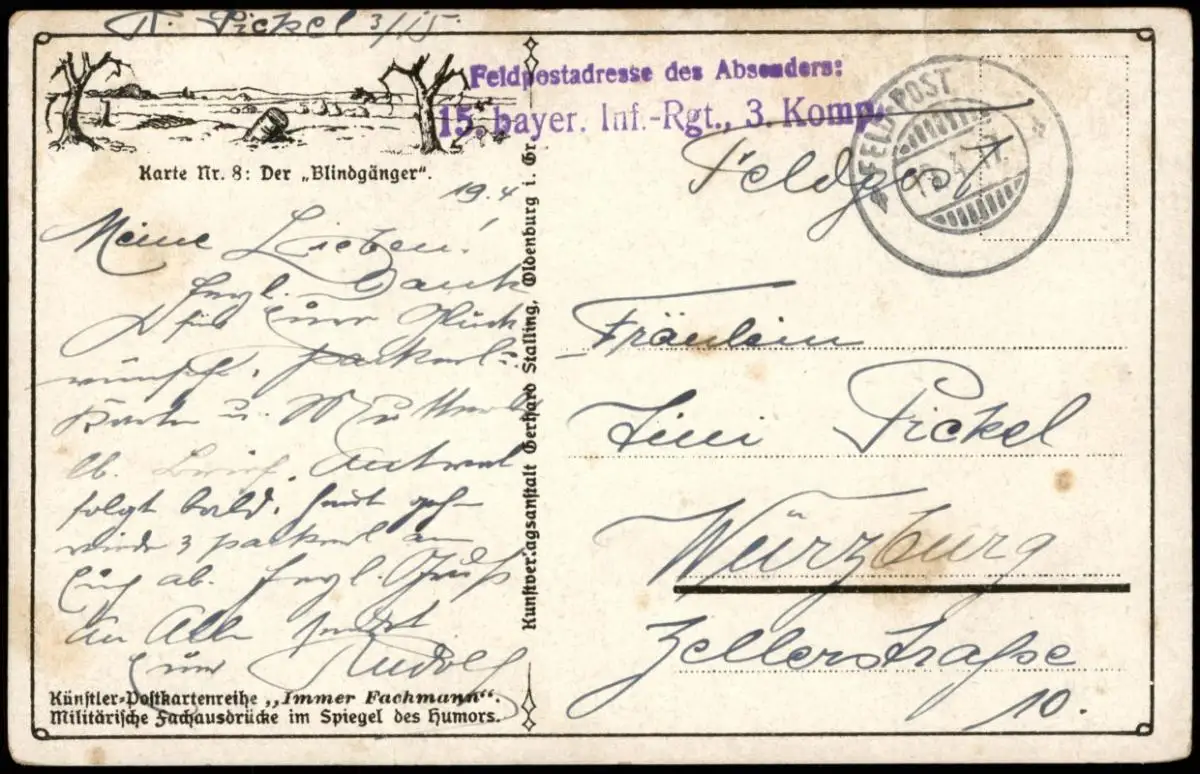 R. Pickel 3/15.
Feldpostadresse des Absenders:
15. bayer. Inf.-Rgt., 3. Komp.
FELD-POST
19.4.17.
Feldpost
Karte Nr. 8: Der „Blindgänger“.
19.4
Meine Lieben!
Herzl. Dank
für Eure Glück-
wünsche, Packerl-
Karten u. Mutterls
lb. Brief. Antwort
folgt bald. Heut geh-
wieder 3 Packerl an
Euch ab. Herzl. Gruß
an Alle sendet
Euer Rudolf
Künstler-Postkartenreihe „Immer Fachmann“.
Militärische Fachausdrücke im Spiegel des Humors.
Kunstverlagsanstalt Gerhard Stalling, Oldenburg i. Gr.
Fräulein
Pickel
Würzburg
Zellerstraße
10.